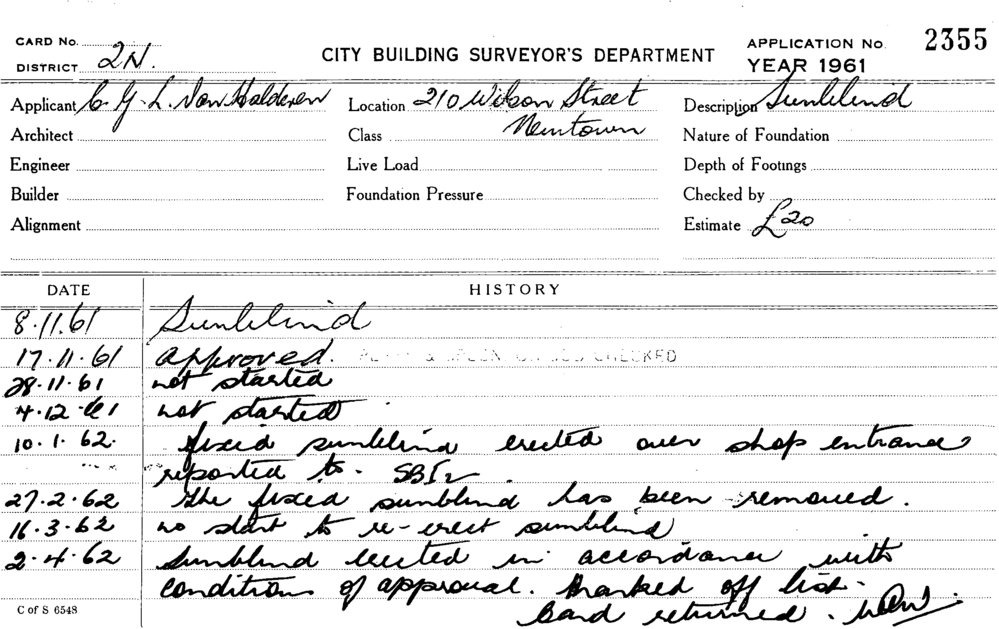 CARD No.
DISTRICT 2N.
CITY BUILDING SURVEYOR'S DEPARTMENT
APPLICATION No. 2355
YEAR 1961
Applicant C. G. L. Van Halderen
Location 210 Wilson Street
Newtown
Description Sunblind
Architect
Class
Nature of Foundation
Engineer
Live Load
Depth of Footings
Builder
Foundation Pressure
Checked by
Alignment
Estimate £20
DATE HISTORY
8.11.61 Sunblind
17.11.61 approved. CHECKED
28.11.61 not started
4.12.61 not started
10.1.62. fixed sunblind erected over shop entrance
reported to - SBI
27.2.62 The fixed sunblind has been removed.
16.3.62 no start to re-erect sunblind
2.4.62 Sunblind erected in accordance with
conditions of approval. Marked off list.
Card returned.
C of S 6548